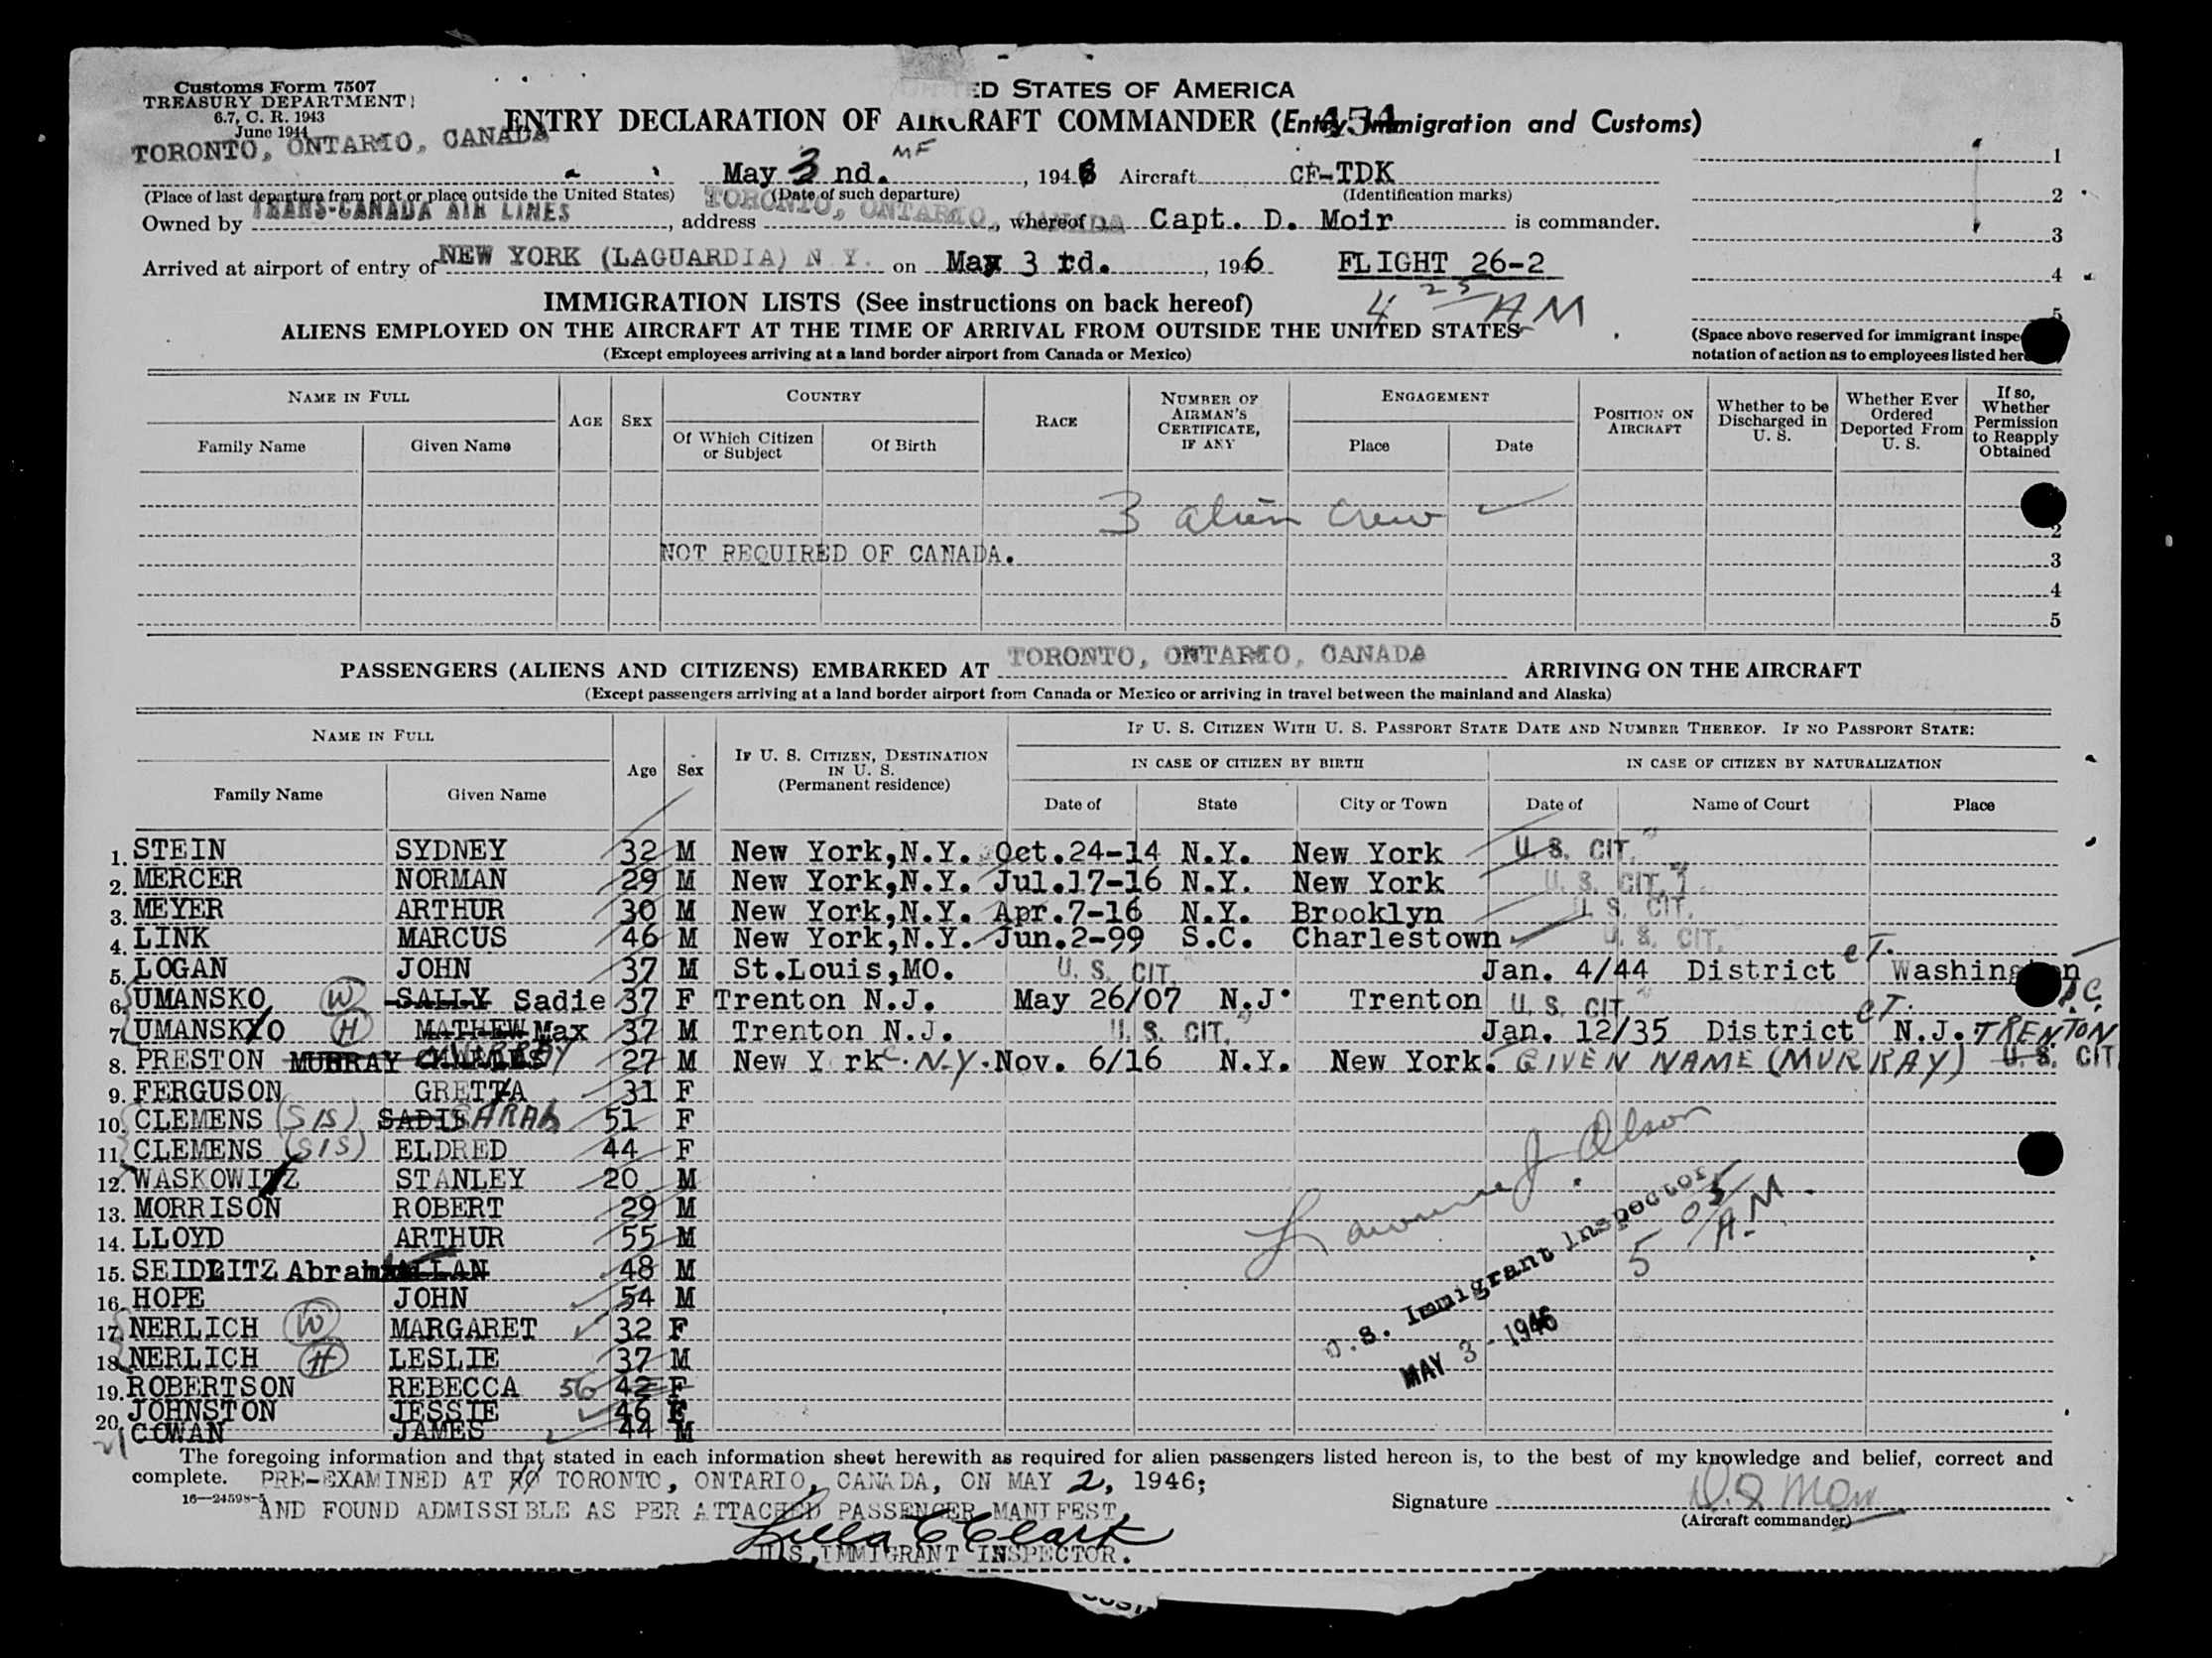 Customs Form 7507
TREASURY DEPARTMENT
6.7, C. R. 1943
June 1944
ED STATES OF AMERICA
ENTRY DECLARATION OF AIRCRAFT COMMANDER (Entry, Immigration and Customs)
454
TORONTO, ONTARIO, CANADA
May 3 nd. MF, 1946 Aircraft CF-TDK
(Place of last departure from port or place outside the United States) (Date of such departure) (Identification marks)
Owned by TRANS-CANADA AIR LINES, address TORONTO, ONTARIO, CANADA, whereof Capt. D. Moir is commander.
Arrived at airport of entry of NEW YORK (LAGUARDIA) N Y. on May 3 rd., 1946 FLIGHT 26-2
4 25 AM
1
2
3
4
5
IMMIGRATION LISTS (See instructions on back hereof)
ALIENS EMPLOYED ON THE AIRCRAFT AT THE TIME OF ARRIVAL FROM OUTSIDE THE UNITED STATES
(Except employees arriving at a land border airport from Canada or Mexico)
(Space above reserved for immigrant inspe
notation of action as to employees listed her
NAME IN FULL AGE SEX COUNTRY RACE NUMBER OF AIRMAN'S CERTIFICATE, IF ANY ENGAGEMENT POSITION ON AIRCRAFT Whether to be Discharged in U. S. Whether Ever Ordered Deported From U. S. If so, Whether Permission to Reapply Obtained
Family Name Given Name Of Which Citizen or Subject Of Birth Place Date
3 alien crew
2
NOT REQUIRED OF CANADA. 3
4
5
PASSENGERS (ALIENS AND CITIZENS) EMBARKED AT TORONTO, ONTARIO, CANADA ARRIVING ON THE AIRCRAFT
(Except passengers arriving at a land border airport from Canada or Mexico or arriving in travel between the mainland and Alaska)
NAME IN FULL Age Sex IF U. S. CITIZEN, DESTINATION IN U. S. (Permanent residence) IF U. S. CITIZEN WITH U. S. PASSPORT STATE DATE AND NUMBER THEREOF. IF NO PASSPORT STATE:
IN CASE OF CITIZEN BY BIRTH IN CASE OF CITIZEN BY NATURALIZATION
Family Name Given Name Date of State City or Town Date of Name of Court Place
1. STEIN SYDNEY 32 M New York,N.Y. Oct.24-14 N.Y. New York U. S. CIT.
2. MERCER NORMAN 29 M New York,N.Y. Jul.17-16 N.Y. New York U. S. CIT.
3. MEYER ARTHUR 30 M New York,N.Y. Apr.7-16 N.Y. Brooklyn U. S. CIT.
4. LINK MARCUS 46 M New York,N.Y. Jun.2-99 S.C. Charlestown U. S. CIT.
5. LOGAN JOHN 37 M St.Louis,MO. U. S. CIT. Jan. 4/44 District CT. Washington D.C.
6. UMANSKO (W) SALLY Sadie 37 F Trenton N.J. May 26/07 N.J. Trenton U. S. CIT.
7. UMANSKYO (H) MATHEW Max 37 M Trenton N.J. U. S. CIT. Jan. 12/35 District CT. N.J. TRENTON
8. PRESTON MURRAY CHARLES MURRAY 27 M New Y rk C. N.Y. Nov. 6/16 N.Y. New York. GIVEN NAME (MURRAY) U. S. CIT
9. FERGUSON GRETTA 31 F
10. CLEMENS (SIS) SADIE SARAh 51 F
11. CLEMENS (SIS) ELDRED 44 F
12. WASKOWITZ STANLEY 20 M
13. MORRISON ROBERT 29 M
14. LLOYD ARTHUR 55 M
15. SEIDLITZ Abraham ALLAN 48 M
16. HOPE JOHN 54 M
17. NERLICH (W) MARGARET 32 F
18. NERLICH (H) LESLIE 37 M
19. ROBERTSON REBECCA 56 42 F
20. JOHNSTON JESSIE 46 F
21 COWAN JAMES 44 M
Lawrence J. Olson
U. S. Immigrant Inspector
5 05 A.M.
MAY 3 - 1946
The foregoing information and that stated in each information sheet herewith as required for alien passengers listed hereon is, to the best of my knowledge and belief, correct and
complete. PRE-EXAMINED AT TORONTO, ONTARIO, CANADA, ON MAY 2, 1946;
16—24598-5 AND FOUND ADMISSIBLE AS PER ATTACHED PASSENGER MANIFEST
Signature
(Aircraft commander)
Lilla C Clark
U.S. IMMIGRANT INSPECTOR.